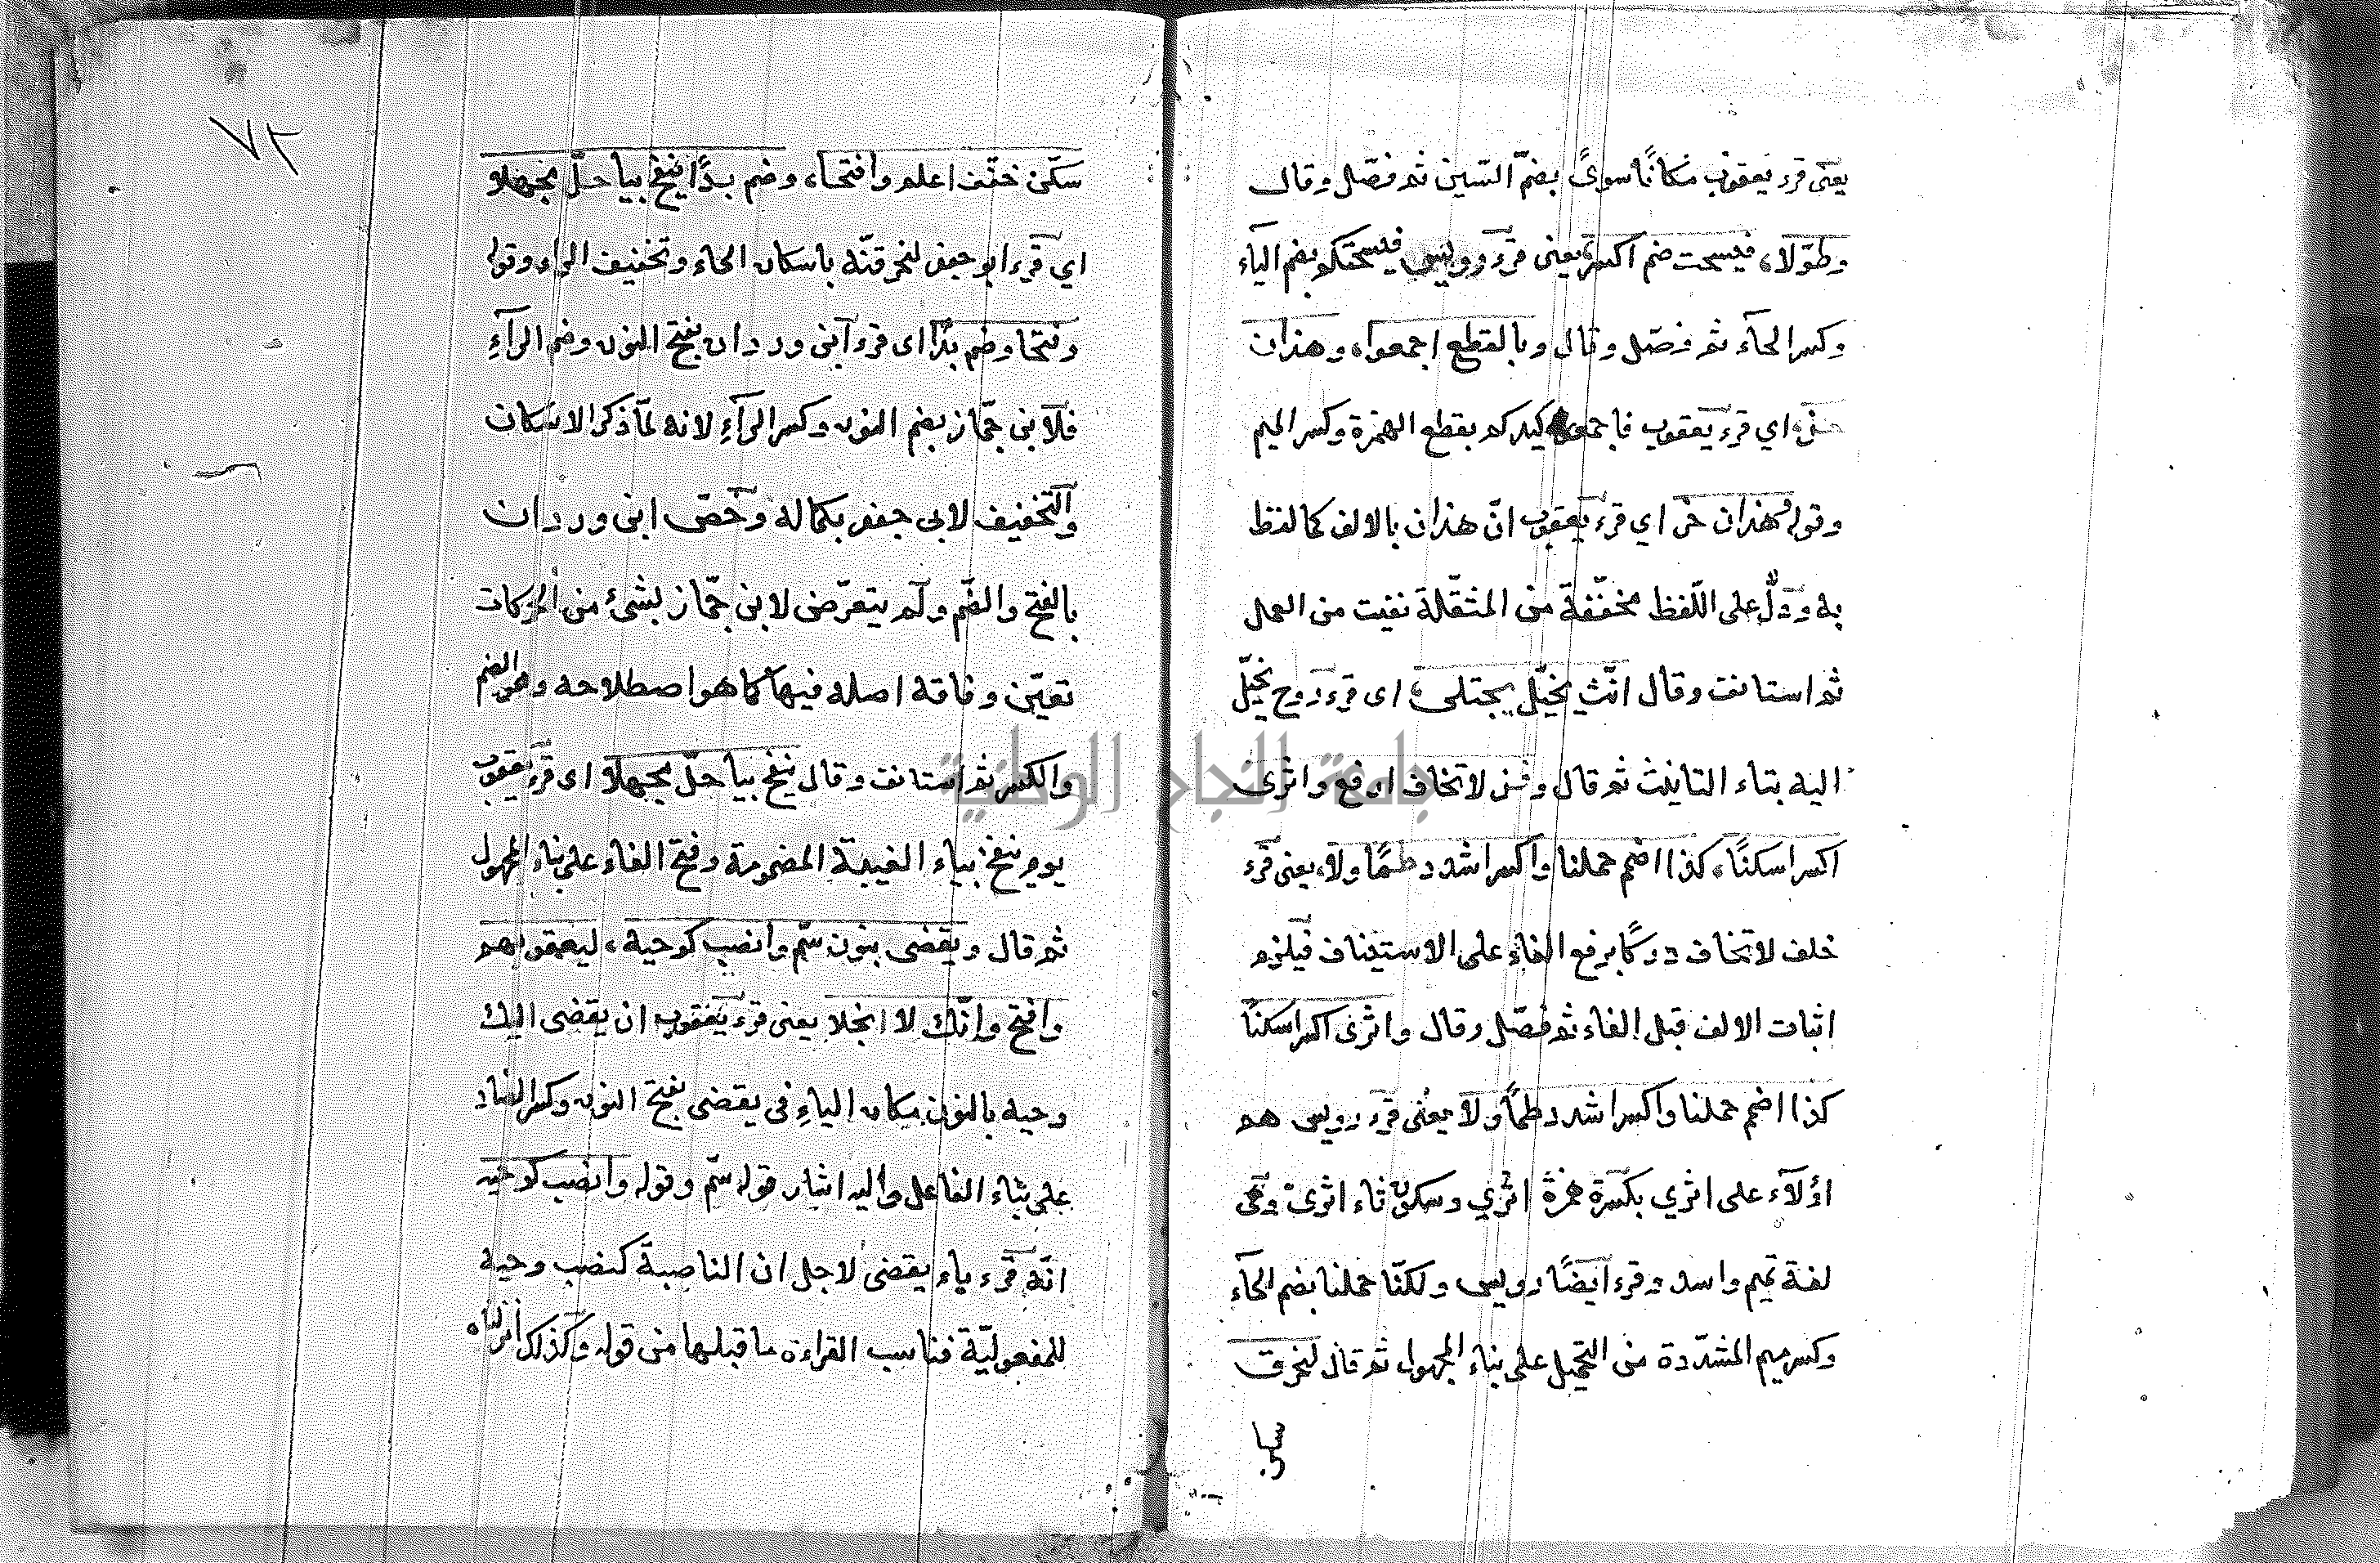 يعنى قرء يعقوب مكانًا سوىً بضمّ السّين ثم فصّل وقال
وطوّلا، فيسحت ضم اكسر، يعنى قرء رويس فيسحتكم بضم الياء
وكسر الحآء ثم فصّل وقال وبالقطع اجمعوا، وهذان
حز، اي قرء يعقوب فاجمعوا كيدكم بقطع الهمزة وكسر الميم
وقوله وهذان حز اي قرء يعقوب انّ هذان بالالف كما لفظ
به ودلّ على اللّفظ مخفّفة من المثقّلة نفيت من العمل
ثم استانف وقال انّث يخيّل يجتلى، اى قرء روح يخيّل
اليه بتاء التانيث ثم قال وفز لا تخاف ارفع واثرى
اكسر اسكنًا، كذا اضم حملنا واكسر اشدد طمًا ولا، يعنى قرء
خلف لا تخاف دركًا برفع الفاء على الاستيناف فيلزم
اثبات الالف قبل الفاء ثم فصّل وقال واثرى اكسر اسكنًا
كذا اضم حملنا واكسر اشدد طمًا ولا يعنى قرء رويس هم
اؤلآء على اثري بكسرة همزة اثري وسكون ثاء اثرى وهى
لغة تميم واسد وقرء ايضًا رويس ولكنّا حملنا بضم الحآء
وكسر ميم المشدّدة من التحميل على بناء المجهول ثم قال لنحرق
سكن
جامعة النجاح الوطنية
٧٢
سكّن خفّف اعلم وافتحا، وضم بدًا ينفخ بيا حلّ مجهلا
اي قرء ابو جعفر لنحرقنّه باسكان الحاء وتخفيف الراء وقوله
وفتحا وضم بدًا اى قرء ابن وردان بفتح النون وضم الرآءِ
فلابن جمّاز بضم النون وكسر الرآءِ لانه لمّا ذكر الاسكان
والتخفيف لابى جعفر بكماله وخصّ ابن وردان
بالفتح والضّم ولم يتعرّض لابن جمّاز بشئ من الحركات
تعيّن وفاقه اصله فيها كما هو اصطلاحه وهو الضم
والكسر ثم استانف وقال ينفخ بيا حلّ مجهلا اى قرء يعقوب
يوم ينفخ بياء الغيبة المضمومة وفتح الفاء على بناء المجهول
ثم قال ويقضى بنون سّم وانصب كوحيه، ليعقوبهم
وافتح وانّك لا انجلا يعنى قرء يعقوب ان يقضى اليك
وحيه بالنون مكان الياءِ فى يقضى بفتح النون وكسر الضاد
على بناء الفاعل واليه اشار قوله سّم وقوله وانصب كوحيه
انّه قرء ياء يقضى لاجل ان الناصبة كنصب وحيه
للمفعوليّة فناسب القراءة ما قبلها من قوله وكذلك انزلناه